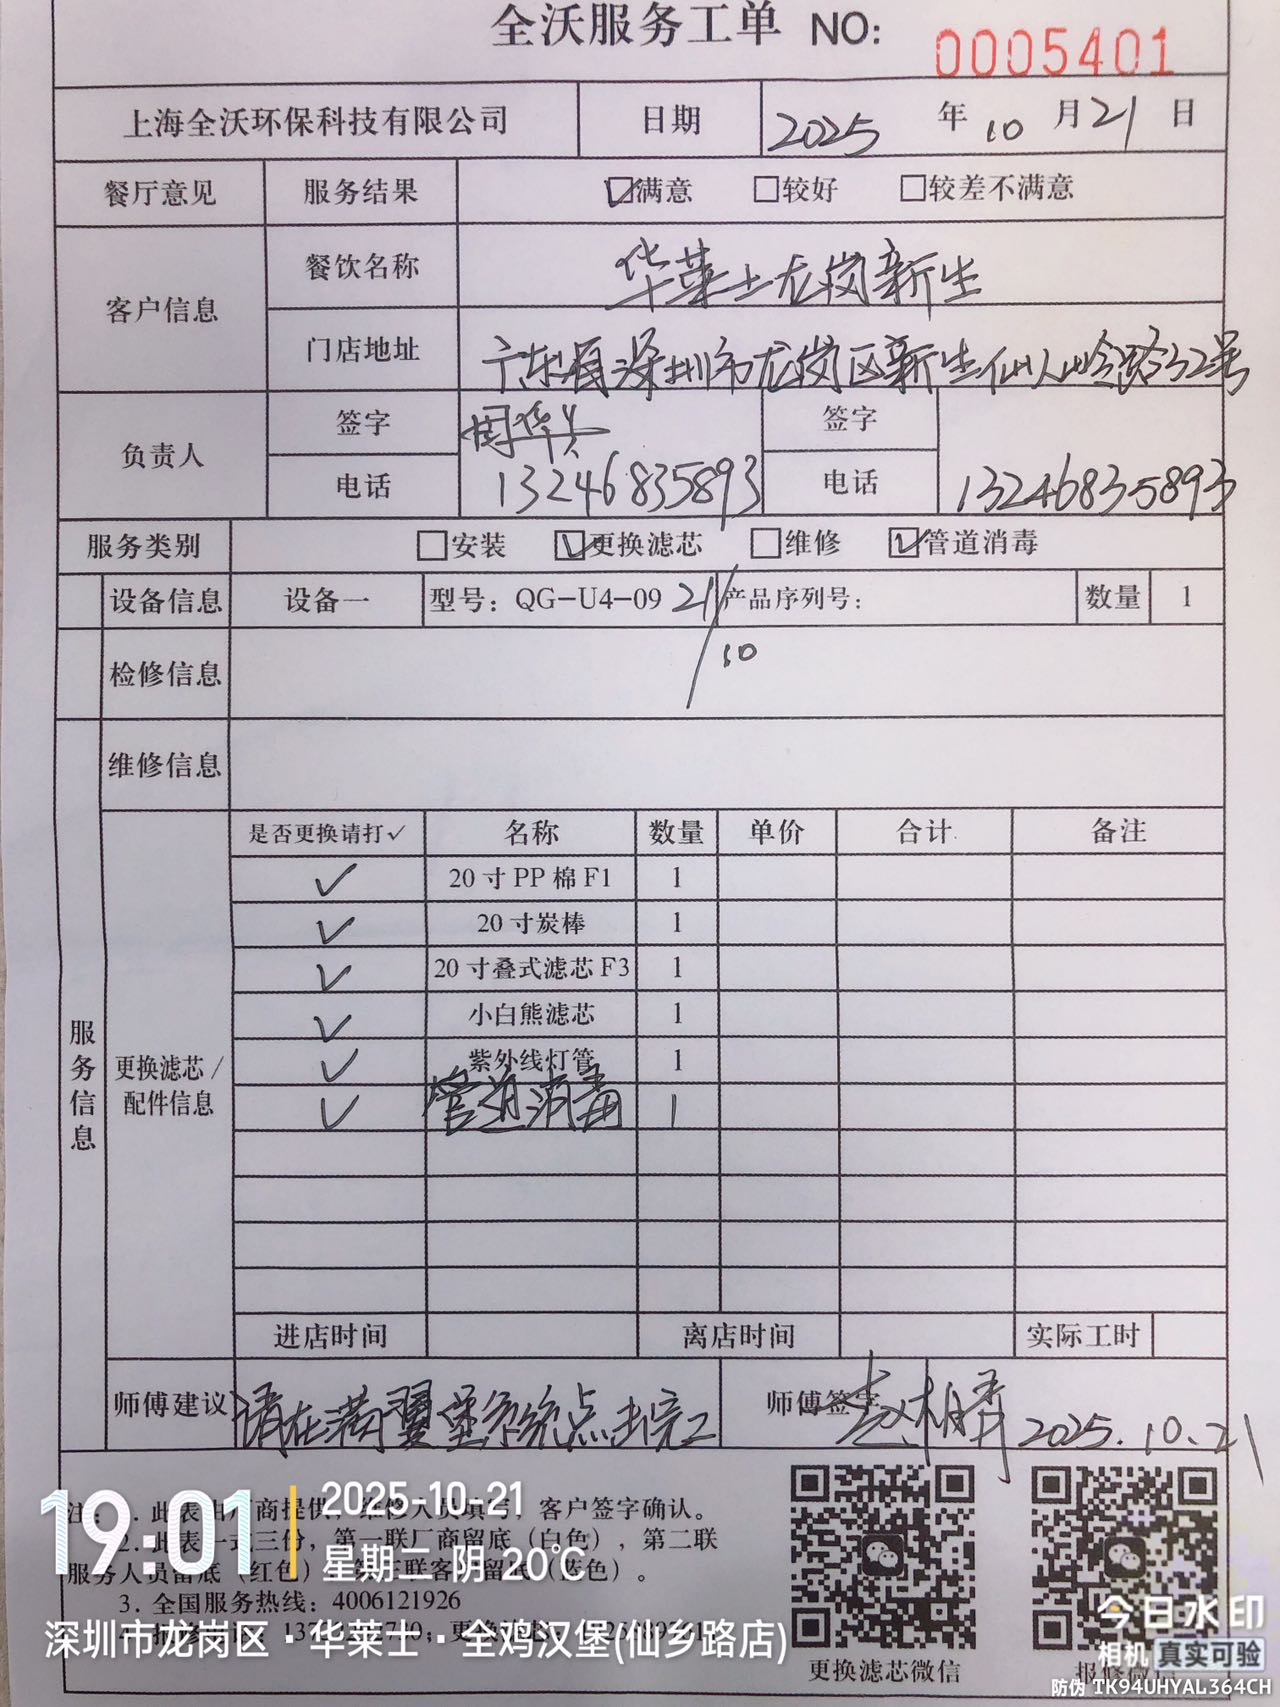 全沃服务工单 NO: 0005401
上海全沃环保科技有限公司 日期 2025 年 10 月 21 日
餐厅意见 服务结果 ☑满意 □较好 □较差不满意
客户信息 餐饮名称 华莱士龙岗新生
门店地址 广东省深圳市龙岗区新生仙人岭路32号
负责人 签字 签字
电话 13246835893 电话 13246835893
服务类别 □安装 ☑更换滤芯 □维修 ☑管道消毒
设备信息 设备一 型号: QG-U4-09 21/10 产品序列号: 数量 1
检修信息
维修信息
是否更换请打✓ 名称 数量 单价 合计 备注
✓ 20寸PP棉F1 1
✓ 20寸炭棒 1
✓ 20寸叠式滤芯F3 1
✓ 小白熊滤芯 1
✓ 紫外线灯管 1
✓ 管道消毒 1
服务信息
更换滤芯/
配件信息
进店时间 离店时间 实际工时
师傅建议 请在满翼堡系统点击完工 师傅签字 2025.10.21
注: 1. 此表由厂商提供, 维修人员填写, 客户签字确认。
2. 此表一式三份, 第一联厂商留底 (白色), 第二联
服务人员留底 (红色) 第三联客户留底 (蓝色)。
3. 全国服务热线: 4006121926
更换滤芯微信 报修微信
19:01 2025-10-21
星期二 阴 20℃
深圳市龙岗区·华莱士·全鸡汉堡(仙乡路店)
今日水印
相机 真实可验
防伪 TK94UHYAL364CH